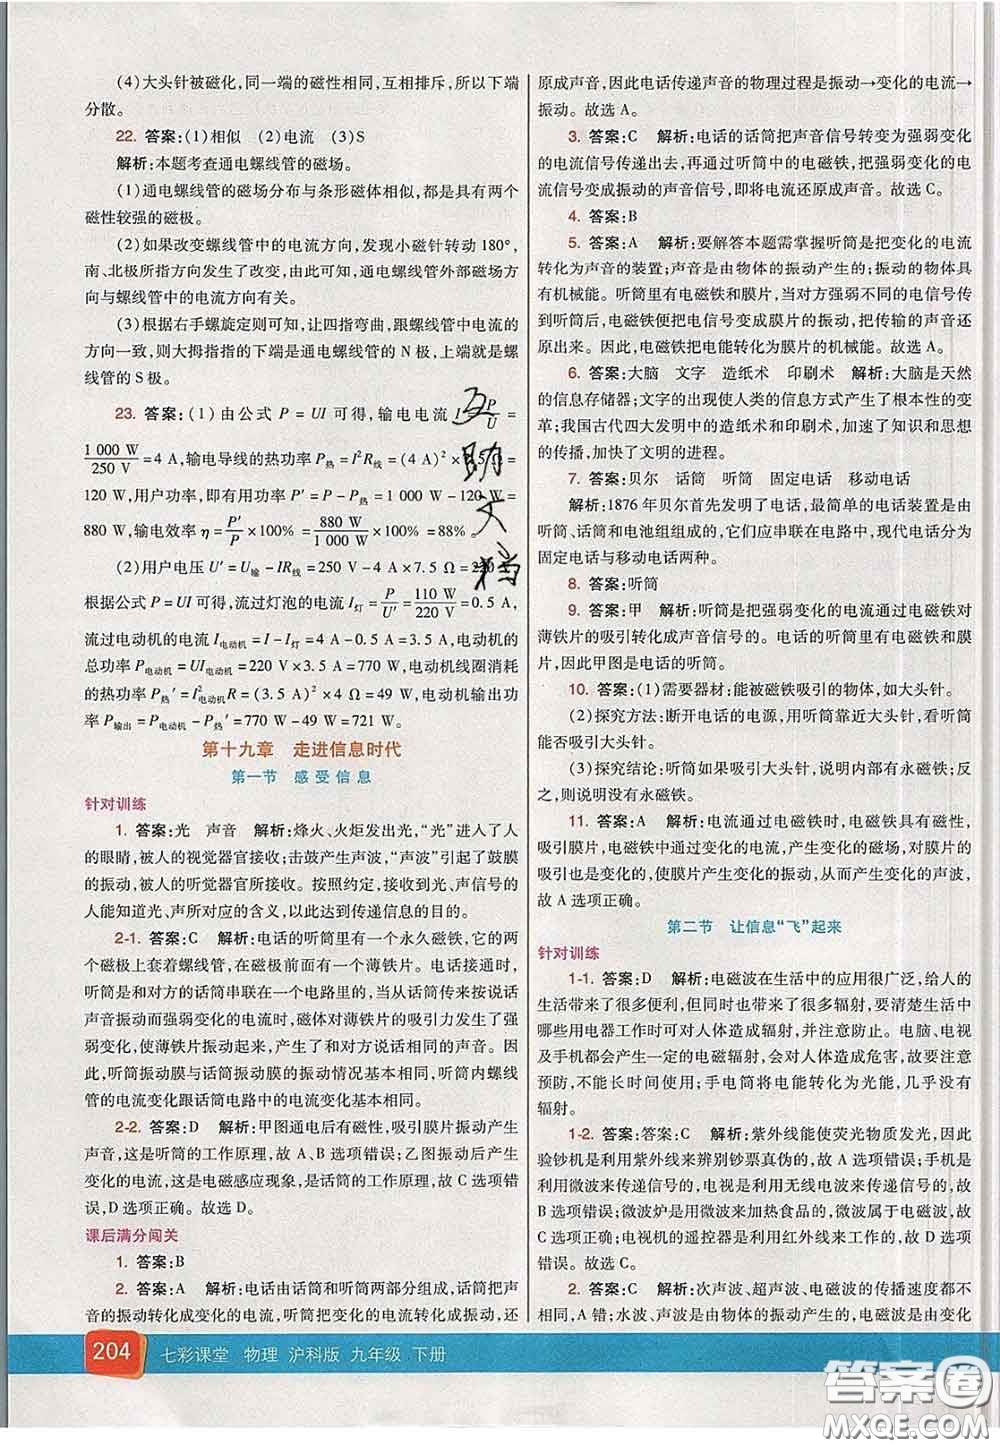 (4)大头针被磁化,同一端的磁性相同,互相排斥,所以下端
分散。
22. 答案:(1)相似 (2)电流 (3)S
解析:本题考查通电螺线管的磁场。
(1)通电螺线管的磁场分布与条形磁体相似,都是具有两个
磁性较强的磁极。
(2)如果改变螺线管中的电流方向,发现小磁针转动180°,
南、北极所指方向发生了改变,由此可知,通电螺线管外部磁场方
向与螺线管中的电流方向有关。
(3)根据右手螺旋定则可知,让四指弯曲,跟螺线管中电流的
方向一致,则大拇指指的下端是通电螺线管的 N 极,上端就是螺
线管的 S 极。
23. 答案:(1)由公式 P = UI 可得,输电电流 I = P/U =
1 000 W/250 V = 4 A,输电导线的热功率 P热 = I²R线 = (4 A)² × 7.5 Ω =
120 W,用户功率,即有用功率 P′ = P − P热 = 1 000 W − 120 W =
880 W,输电效率 η = P′/P × 100% = 880 W/1 000 W × 100% = 88%。
(2)用户电压 U′ = U输 − IR线 = 250 V − 4 A × 7.5 Ω = 220 V,
根据公式 P = UI 可得,流过灯泡的电流 I灯 = P/U′ = 110 W/220 V = 0.5 A,
流过电动机的电流 I电动机 = I − I灯 = 4 A − 0.5 A = 3.5 A,电动机的
总功率 P电动机 = UI电动机 = 220 V × 3.5 A = 770 W,电动机线圈消耗
的热功率 P热′ = I²电动机R = (3.5 A)² × 4 Ω = 49 W,电动机输出功
率 P输出 = P电动机 − P热′ = 770 W − 49 W = 721 W。
第十九章 走进信息时代
第一节 感受信息
针对训练
1. 答案:光 声音 解析:烽火、火炬发出光,“光”进入了人
的眼睛,被人的视觉器官接收;击鼓产生声波,“声波”引起了鼓膜
的振动,被人的听觉器官所接收。按照约定,接收到光、声信号的
人能知道光、声所对应的含义,以此达到传递信息的目的。
2-1. 答案:C 解析:电话的听筒里有一个永久磁铁,它的两
个磁极上套着螺线管,在磁极前面有一个薄铁片。电话接通时,
听筒是和对方的话筒串联在一个电路里的,当从话筒传来的随
声音振动而强弱变化的电流时,磁体对薄铁片的吸引力发生了强
弱变化,使薄铁片振动起来,产生了和对方说话相同的声音。因
此,听筒振动膜与话筒振动膜的振动情况基本相同,听筒内螺线
管的电流变化跟话筒电路中的电流变化基本相同。
2-2. 答案:D 解析:甲图通电后有磁性,吸引膜片振动产生
声音,这是听筒的工作原理,故 A、B 选项错误;乙图振动后产生
变化的电流,这是电磁感应现象,是话筒的工作原理,故 C 选项错
误,D 选项正确。故选 D。
课后满分闯关
1. 答案:B
2. 答案:A 解析:电话由话筒和听筒两部分组成,话筒把声
音的振动转化成变化的电流,听筒把变化的电流转化成振动,还
原成声音,因此电话传递声音的物理过程是振动→变化的电流→
振动。故选 A。
3. 答案:C 解析:电话的话筒把声音信号转变为强弱变化
的电流信号传递出去,再通过听筒中的电磁铁,把强弱变化的电
流信号变成振动的声音信号,即将电流还原成声音。故选 C。
4. 答案:B
5. 答案:A 解析:要解答本题需掌握听筒是把变化的电流
转化为声音的装置;声音是由物体的振动产生的;振动的物体具
有机械能。听筒里有电磁铁和膜片,当对方强弱不同的电信号传
到听筒后,电磁铁便把电信号变成膜片的振动,把传输的声音还
原出来。因此,电磁铁把电能转化为膜片的机械能。故选 A。
6. 答案:大脑 文字 造纸术 印刷术 解析:大脑是天然
的信息存储器;文字的出现使人类的信息方式产生了根本性的变
革;我国古代四大发明中的造纸术和印刷术,加速了知识和思想
的传播,加快了文明的进程。
7. 答案:贝尔 话筒 听筒 固定电话 移动电话
解析:1876 年贝尔首先发明了电话,最简单的电话装置是由
听筒、话筒和电池组组成的,它们应串联在电路中,现代电话分为
固定电话与移动电话两种。
8. 答案:听筒
9. 答案:甲 解析:听筒是把强弱变化的电流通过电磁铁对
薄铁片的吸引转化成声音信号的。电话的听筒里有电磁铁和膜
片,因此甲图是电话的听筒。
10. 答案:(1)需要器材:能被磁铁吸引的物体,如大头针。
(2)探究方法:断开电话的电源,用听筒靠近大头针,看听筒
能否吸引大头针。
(3)探究结论:听筒如果吸引大头针,说明内部有永磁铁;反
之,则说明没有永磁铁。
11. 答案:A 解析:电流通过电磁铁时,电磁铁具有磁性,
吸引膜片,电磁铁中通过变化的电流,产生变化的磁场,对膜片的
吸引也是变化的,使膜片产生变化的振动,从而产生变化的声波,
故 A 选项正确。
第二节 让信息“飞”起来
针对训练
1-1. 答案:D 解析:电磁波在生活中的应用很广泛,给人的
生活带来了很多便利,但同时也带来了很多辐射,要清楚生活中
哪些用电器工作时可对人体造成辐射,并注意防止。电脑、电视
及手机都会产生一定的电磁辐射,会对人体造成危害,故要注意
预防,不能长时间的使用它们;手电筒将电能转化为光能,几乎没有
辐射。
1-2. 答案:答案:C 解析:紫外线能使荧光物质发光,因此
验钞机是利用紫外线来辨别钞票真伪的,故 A 选项错误;手机是
利用微波来传递信号的,电视是利用无线电波来传递信号的,故 B
选项错误;微波炉是用微波来加热食品的,微波属于电磁波,故 C
选项正确;电视机的遥控器是利用红外线来工作的,故 D 选项
错误。故选 C。
2. 答案:C 解析:次声波、超声波、电磁波的传播速度都不
相同,A 错;水波、声波是由物体的振动产生的,电磁波是由变化
互助文档
204 七彩课堂 物理 沪科版 九年级 下册
答案圈
MXQE.COM